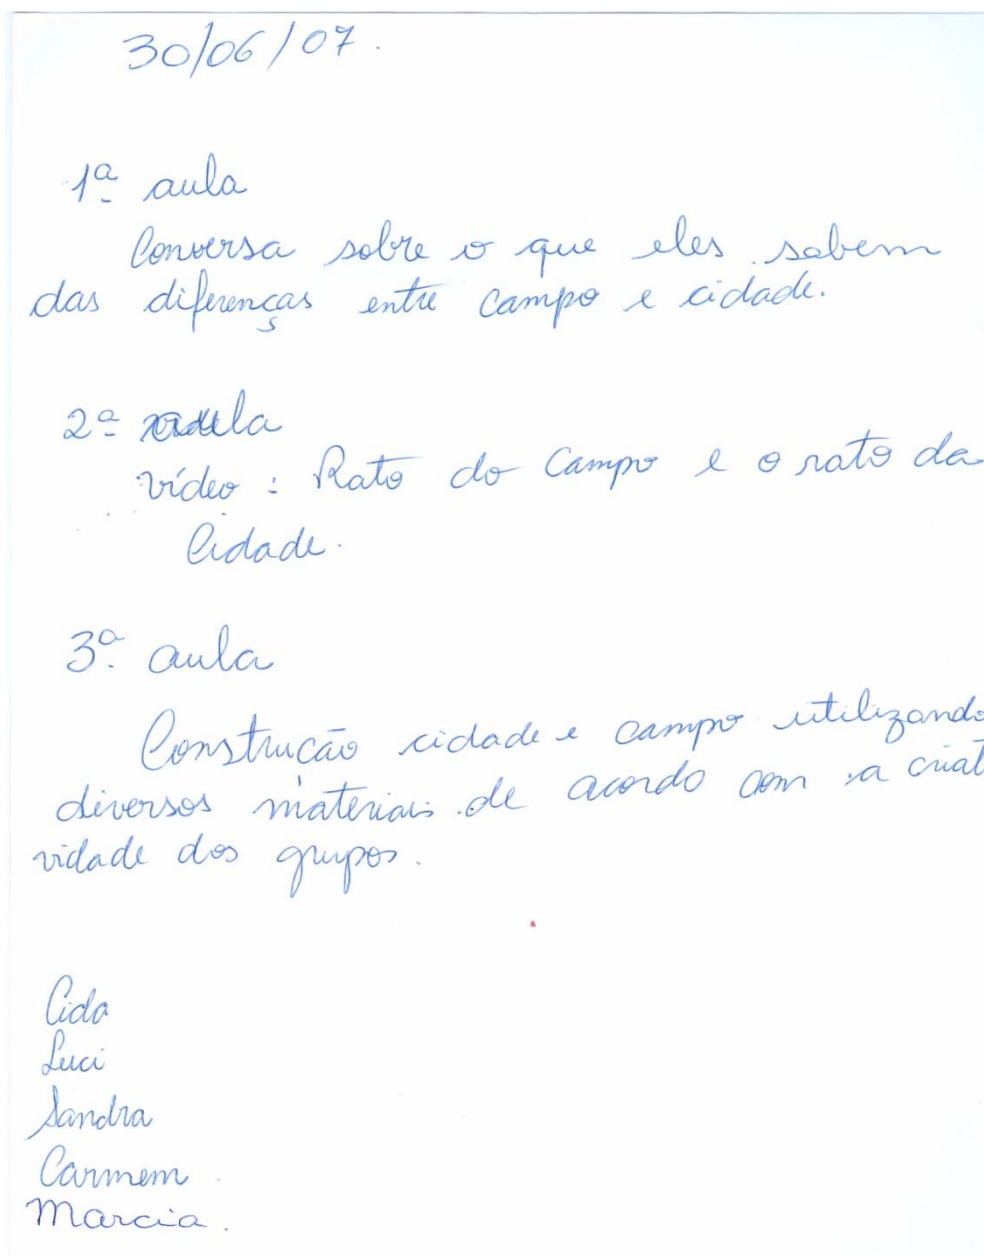 30/06/07.
1ª aula
Conversa sobre o que eles sabem
das diferenças entre campo e cidade.
2ª aula
vídeo: Rato do Campo e o rato da
Cidade.
3ª aula
Construcão cidade e campo utilizando
diversos materiais de acordo com a criat
vidade dos grupos.
Cida
Luci
Sandra
Carmem
Marcia.